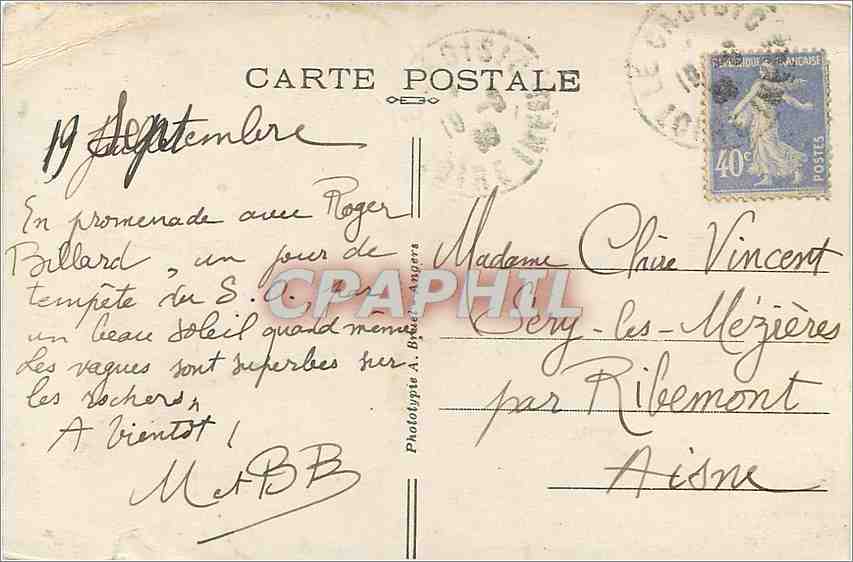 CARTE POSTALE
LE CROISIC
LE CROISIC
REPUBLIQUE FRANÇAISE
40c
POSTES
19 Septembre
En promenade avec Roger
Billard, un jour de
tempête du S.O. par
un beau soleil quand même
Les vagues sont superbes sur
les rochers,
A bientôt !
M et BB
Phototypie A. Bruel - Angers
Madame Claire Vincent
Séry-les-Mézières
par Ribemont
Aisne
CPAPHIL